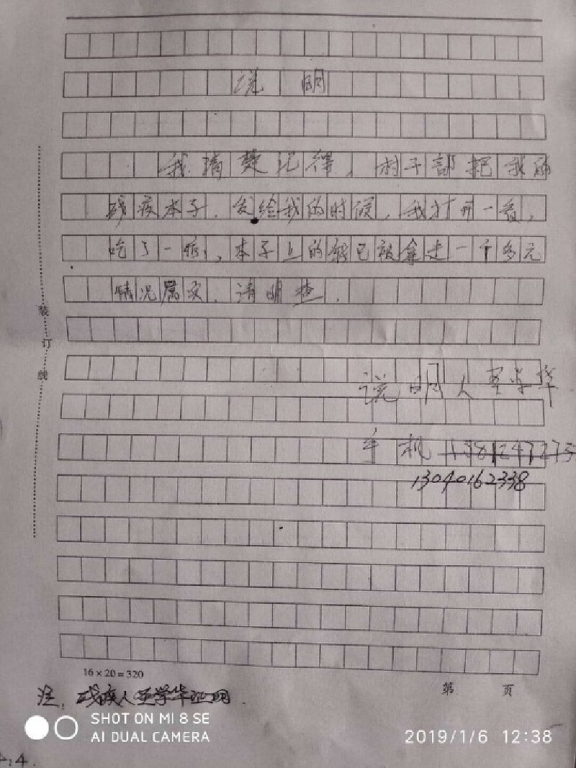 说明
我清楚记得，村干部把我的
残疾本子，发给我的时候，我打开一看，
吃了一惊，本子上的钱已被拿走一千多元
情况属实，请明查．
说明人 学华
手机
13040162338
装订线
16×20=320
第 页
注，残疾人 学华证明．
SHOT ON MI 8 SE
AI DUAL CAMERA
2019/1/6 12:38